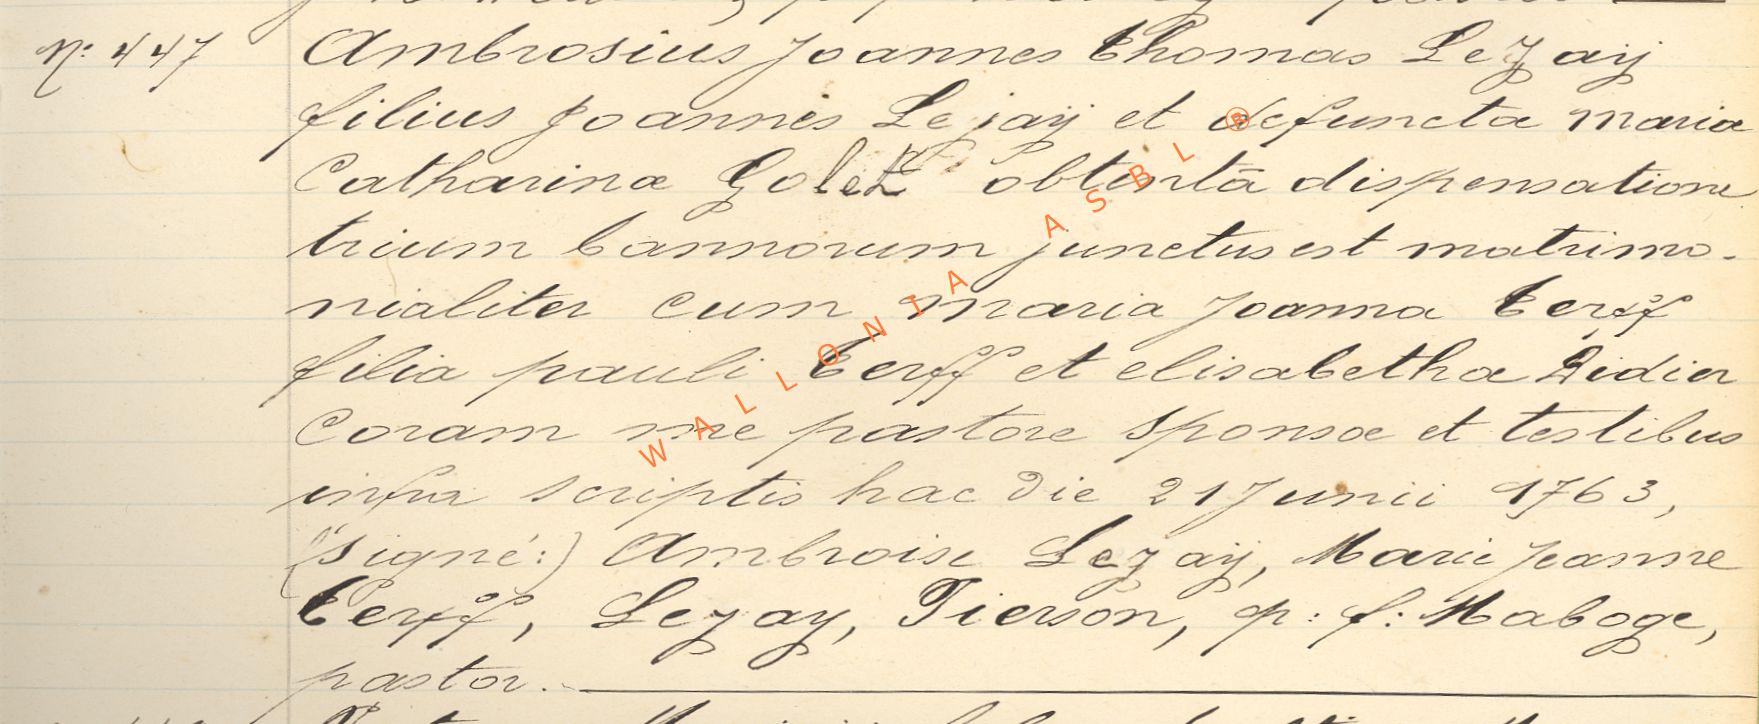 N: 447 Ambrosius Joannes Thomas Lejaÿ
filius Joannis Lejaÿ et defunctæ maria
Catharinæ Golet obtentâ dispensatione
trium bannorum junctus est matrimo-
nialiter cum maria Joanna Cerff
filia pauli Cerff et elisabetha Didier
Coram me pastore sponsæ et testibus
infra scriptis hac die 21 Junii 1763,
(signé:) Ambroise Lejaÿ, Marie Jeanne
Cerff, Lejay, Tierson, p: f: Maboge,
pastor.
WALLONIA ASBL ®